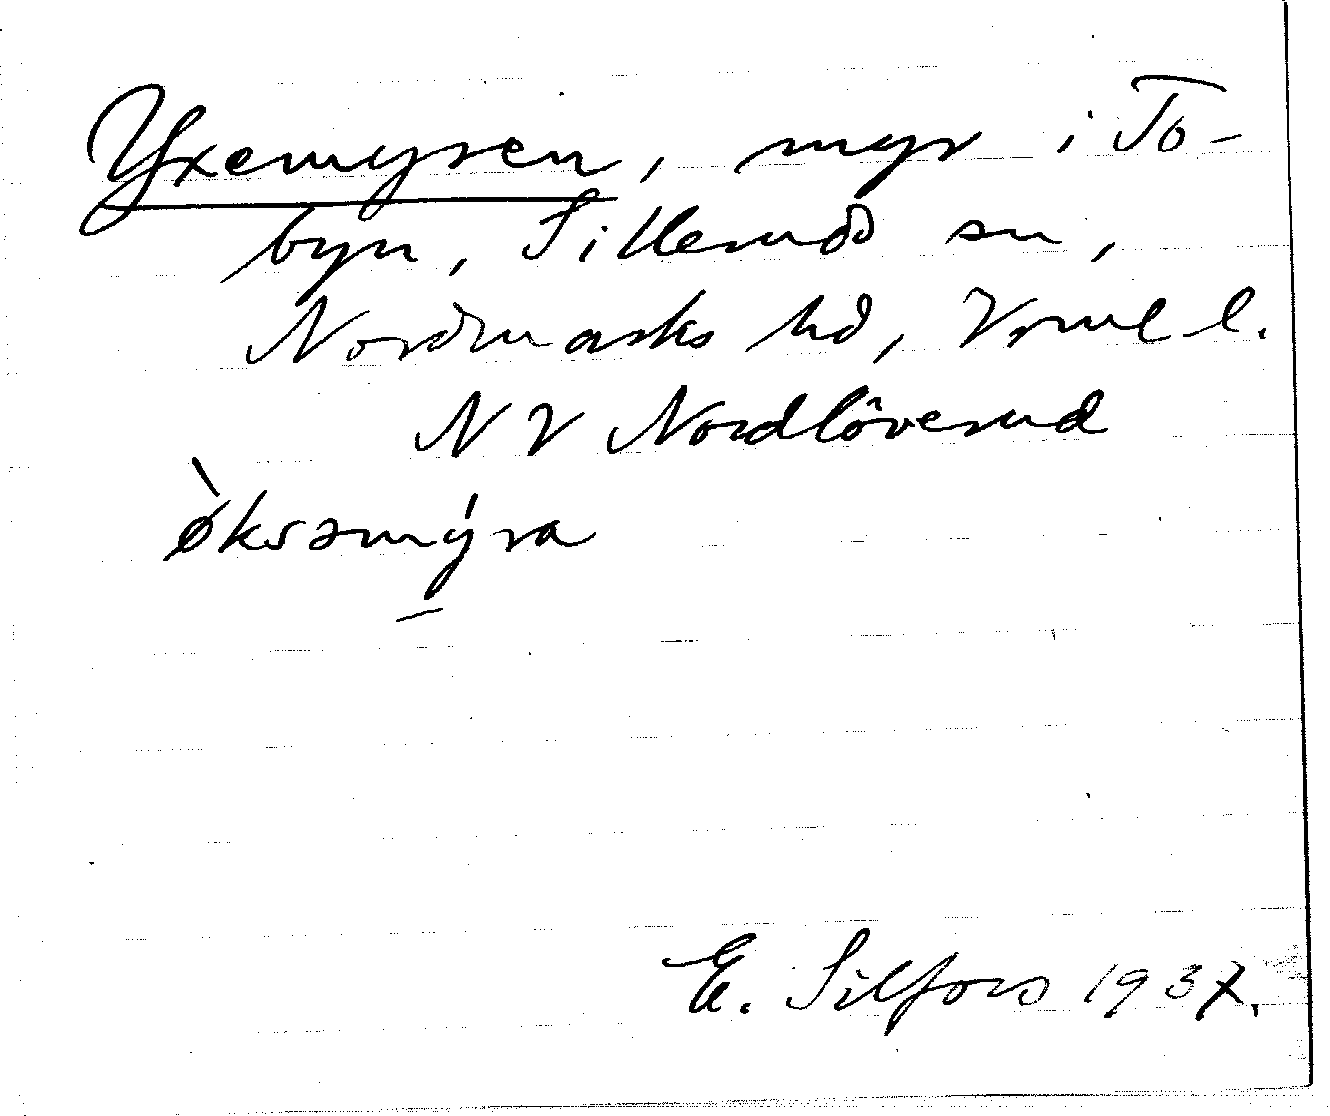 Yxemyren, myr i To-
byn, Sillerud sn,
Nordmarks hd, Vrml l.
NV Nordlöverud
ø̀ksəmýra
E. Silfors 1937.